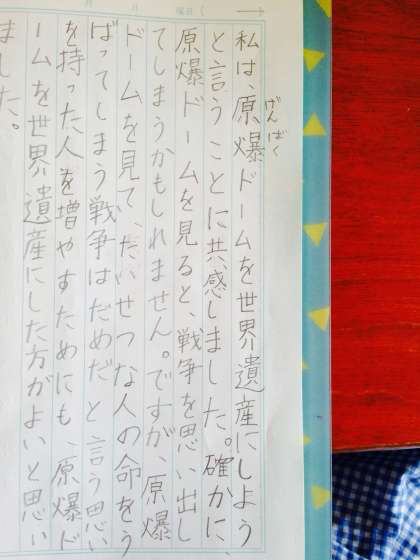 月 日 曜日(
私は、原爆ドームを世界遺産にしよう
げんばく
と言うことに共感しました。確かに、
原爆ドームを見ると、戦争を思い出し
てしまうかもしれません。ですが、原爆
ドームを見て、たいせつな人の命をう
ばってしまう戦争はだめだと言う思い
を持った人を増やすためにも、原爆ド
ームを世界遺産にした方がよいと思い
ました。